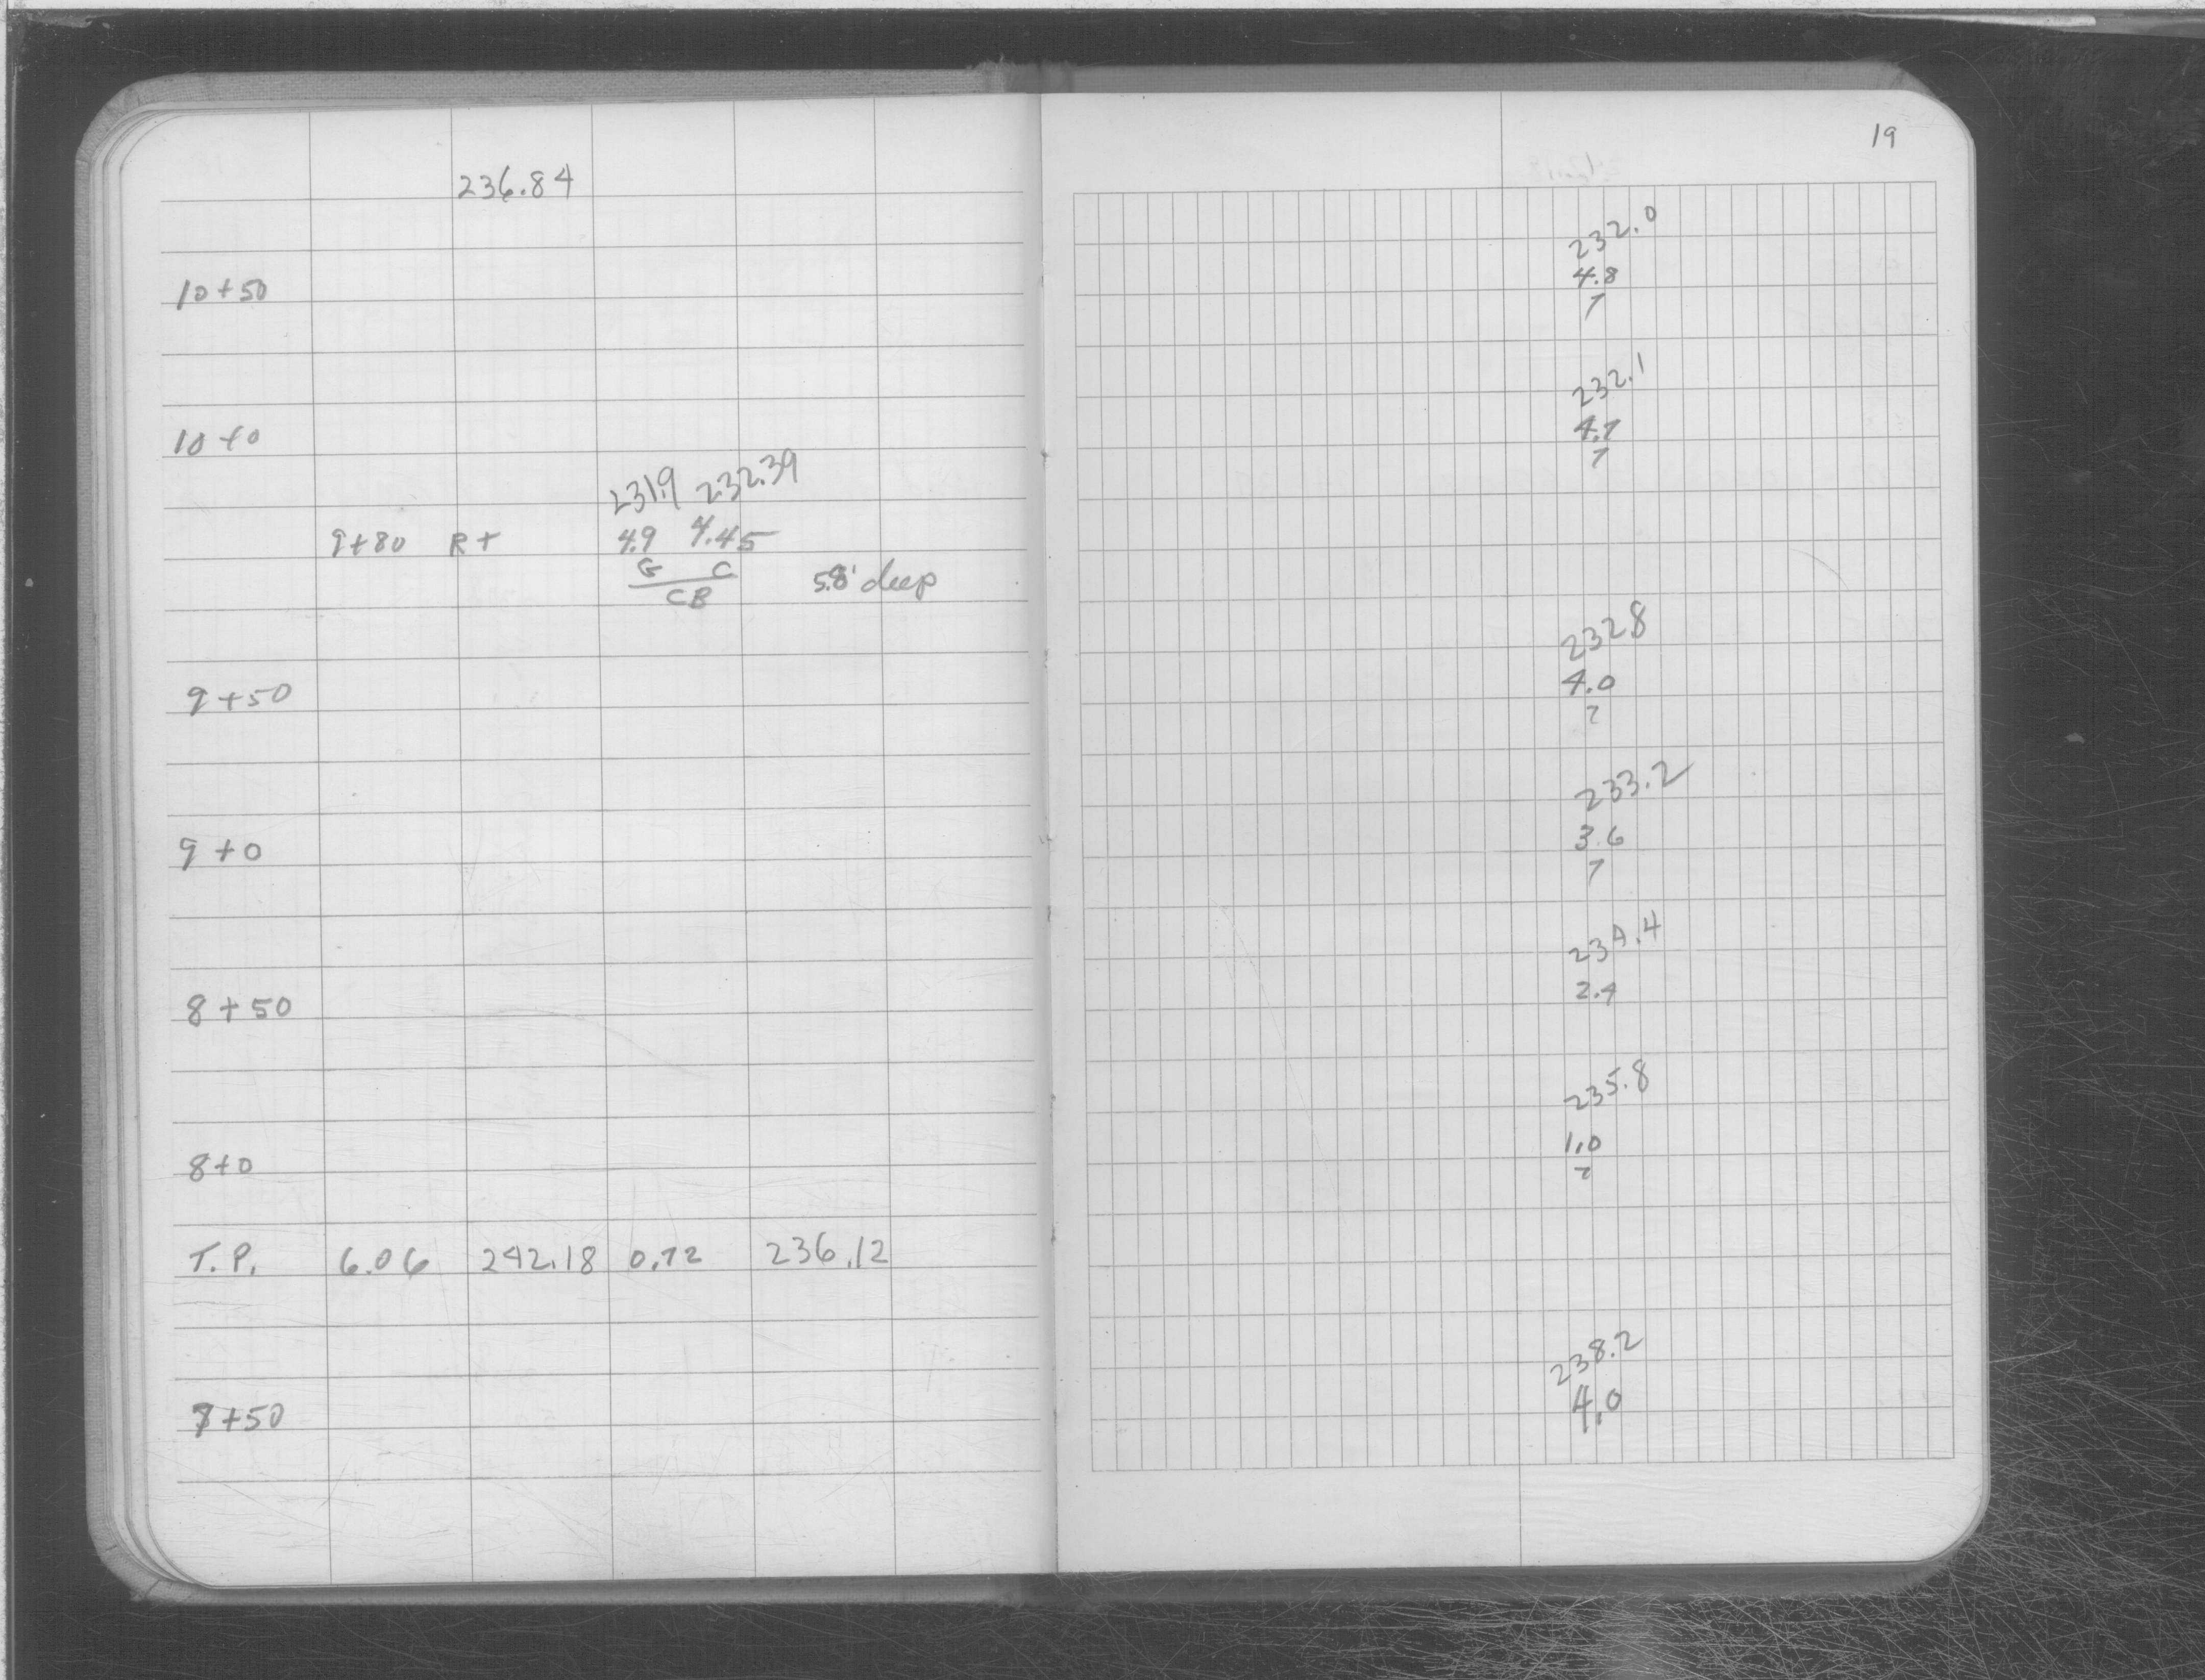 236.84
10+50
10+0
231.9 232.39
9+80 R+ 4.9 4.45
G C
CB 5.8' deep
9+50
9+0
8+50
8+0
T.P. 6.06 242.18 0.72 236.12
7+50
19
232.0
4.8
7
232.1
4.7
7
232.8
4.0
7
233.2
3.6
7
234.4
2.4
235.8
1.0
7
238.2
4.0